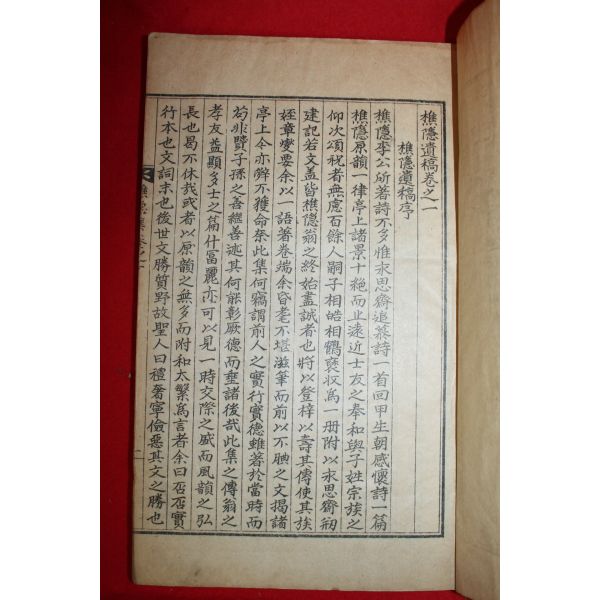 樵隱遺稿卷之一
樵隱遺稿序
樵隱李公所著詩不多惟永思齋追慕詩一首回甲生朝感懷詩一篇
樵隱原韻一律亭上諸景十絶而止遠近士友之奉和與子姓宗族之
仰次頌祝者無慮百餘人嗣子相皓相鶴裒收爲一冊附以永思齋刱
建記若文盖皆樵隱翁之終始盡誠者也將以登梓以壽其傳使其族
姪章燮要余以一語著卷端余昏耄不堪滋筆而前以不腆之文揭諸
亭上今亦辭不獲命奈此集何竊謂前人之實行實德雖著於當時而
苟非賢子孫之善繼善述其何能彰厥德而垂諸後哉此集之傳翁之
孝友益顯多士之篇什富麗亦可以見一時交際之盛而風韻之弘
長也曷不休哉或者以原韻之無多而附和太繁爲言者余曰否否實
行本也文詞末也後世文勝質野故聖人曰禮奢寧儉惡其文之勝也
樵隱集卷之一
一